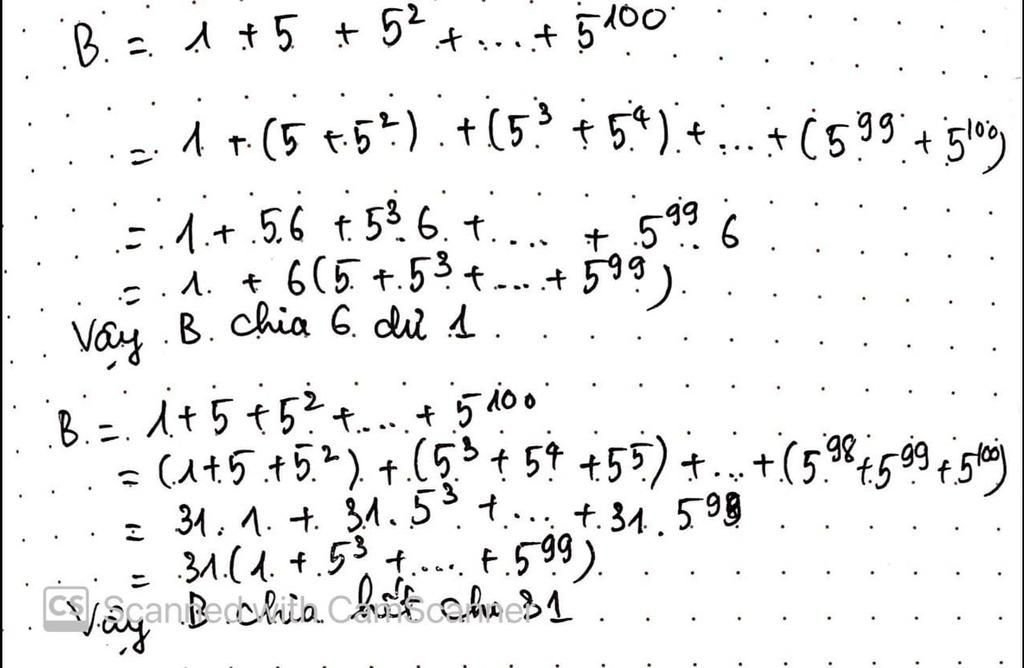 B = 1 + 5 + 5² + ... + 5¹⁰⁰
= 1 + (5 + 5²) + (5³ + 5⁴) + ... + (5⁹⁹ + 5¹⁰⁰)
= 1 + 5.6 + 5³.6 + .... + 5⁹⁹.6
= 1 + 6(5 + 5³ + ... + 5⁹⁹)
Vậy B chia 6 dư 1
B = 1 + 5 + 5² + ... + 5¹⁰⁰
= (1 + 5 + 5²) + (5³ + 5⁴ + 5⁵) + ... + (5⁹⁸ + 5⁹⁹ + 5¹⁰⁰)
= 31.1 + 31.5³ + ... + 31.5⁹⁸
= 31(1 + 5³ + .... + 5⁹⁹)
Vậy B chia hết cho 31
CS Scanned with CamScanner